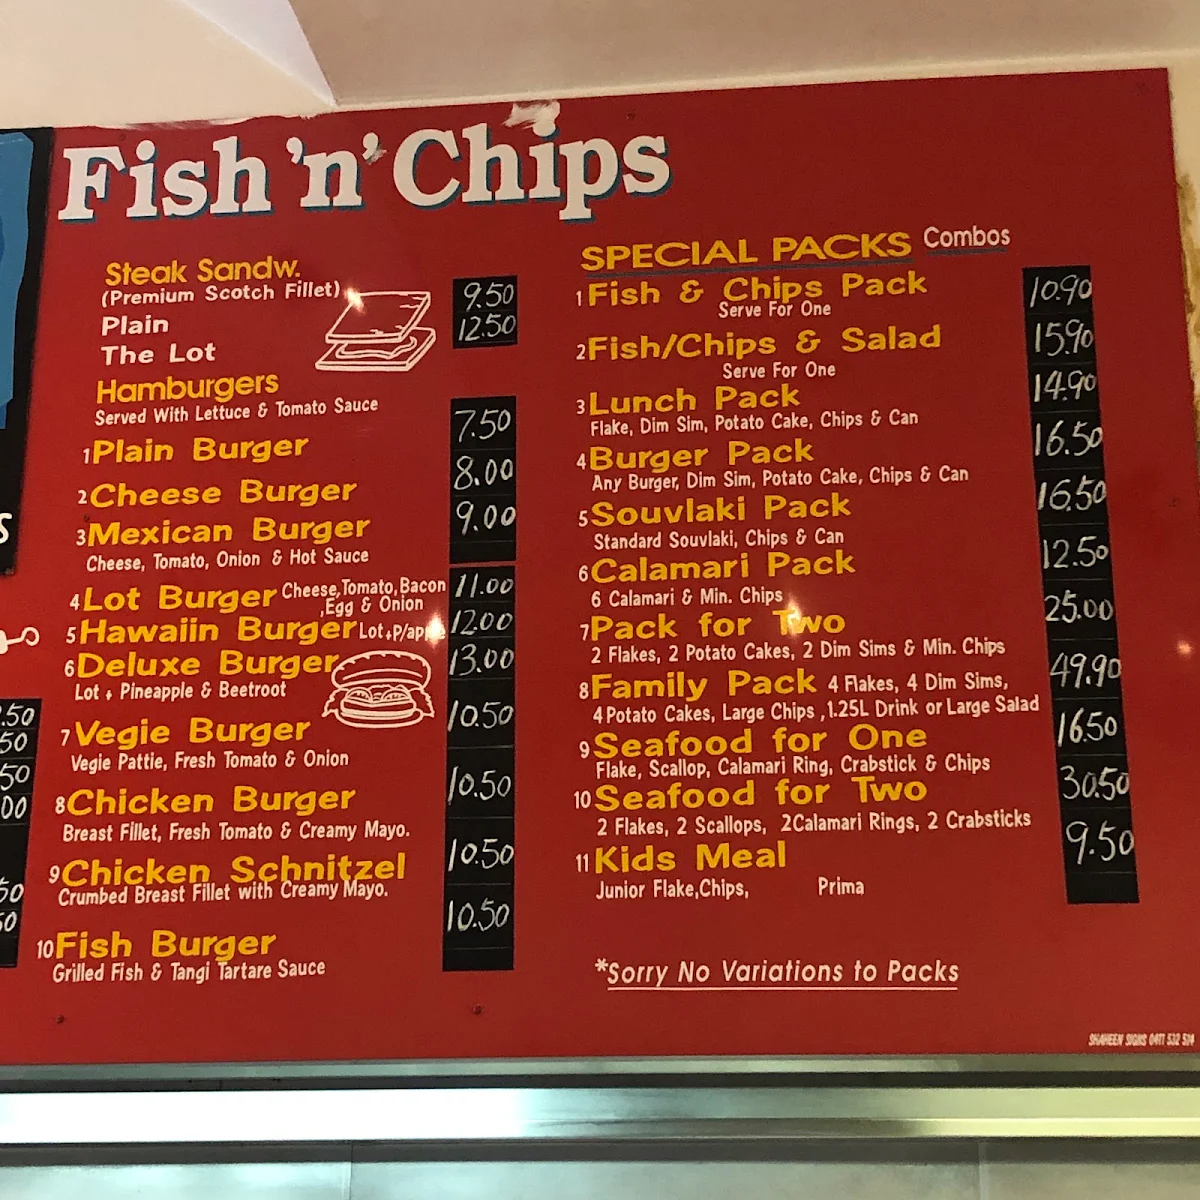 Fish 'n' Chips
Steak Sandw.
(Premium Scotch Fillet)
Plain 9.50
The Lot 12.50
Hamburgers
Served With Lettuce & Tomato Sauce
1 Plain Burger 7.50
2 Cheese Burger 8.00
3 Mexican Burger 9.00
Cheese, Tomato, Onion & Hot Sauce
4 Lot Burger Cheese,Tomato,Bacon 11.00
,Egg & Onion
5 Hawaiin Burger Lot + 12.00
6 Deluxe Burger 13.00
Lot + Pineapple & Beetroot
7 Vegie Burger 10.50
Vegie Pattie, Fresh Tomato & Onion
8 Chicken Burger 10.50
Breast Fillet, Fresh Tomato & Creamy Mayo.
9 Chicken Schnitzel 10.50
Crumbed Breast Fillet with Creamy Mayo.
10 Fish Burger 10.50
Grilled Fish & Tangi Tartare Sauce
SPECIAL PACKS Combos
1 Fish & Chips Pack 10.90
Serve For One
2 Fish/Chips & Salad 15.90
Serve For One
3 Lunch Pack 14.90
Flake, Dim Sim, Potato Cake, Chips & Can
4 Burger Pack 16.50
Any Burger, Dim Sim, Potato Cake, Chips & Can
5 Souvlaki Pack 16.50
Standard Souvlaki, Chips & Can
6 Calamari Pack 12.50
6 Calamari & Min. Chips
7 Pack for Two 25.00
2 Flakes, 2 Potato Cakes, 2 Dim Sims & Min. Chips
8 Family Pack 4 Flakes, 4 Dim Sims, 49.90
4 Potato Cakes, Large Chips ,1.25L Drink or Large Salad
9 Seafood for One 16.50
Flake, Scallop, Calamari Ring, Crabstick & Chips
10 Seafood for Two 30.50
2 Flakes, 2 Scallops, 2Calamari Rings, 2 Crabsticks
11 Kids Meal 9.50
Junior Flake,Chips, Prima
*Sorry No Variations to Packs
SHAHEEN SIGNS 0411 532 514